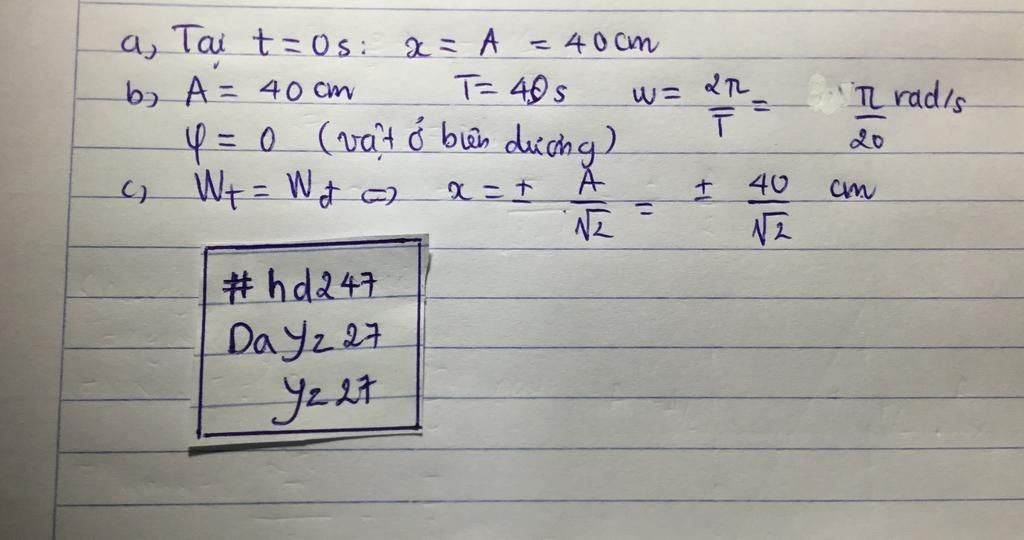 a, Tại t = 0 s: x = A = 40 cm
b, A = 40 cm T = 40 s w = 2π/T = π/20 rad/s
φ = 0 (vật ở biên dương)
c, Wt = Wđ ⇔ x = ± A/√2 = ± 40/√2 cm
#hd247
Dayz27
yz27